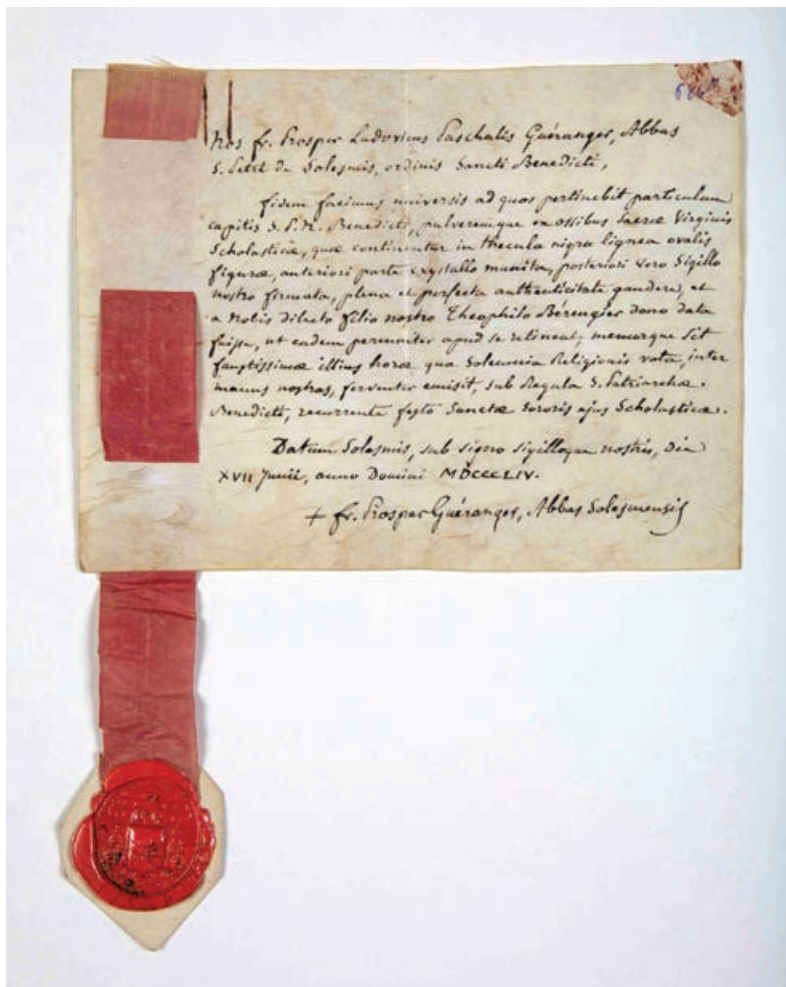 Nos fr. Prosper Ludovicus Paschalis Guéranger, Abbas
S. Petri de Solesmis, ordinis Sancti Benedicti,
fidem facimus universis ad quos pertinebit particulam
capitis S. P. N. Benedicti, pulveremque ex ossibus Sacræ Virginis
Scholasticæ, quæ continentur in thecula nigra lignea ovalis
figuræ, anteriori parte crystallo munita, posteriori vero Sigillo
nostro firmata, plena et perfecta authenticitate gaudere, et
a Nobis dilecto filio nostro Theophilo Bérengier dono data
fuisse, ut eadem permaneat apud se retineat, memorque sit
faustissimæ illius horæ qua Solemnia Religionis vota, inter
manus nostras, ferventer emisit, sub Regula S. Patriarchæ
Benedicti, recurrente festo Sanctæ Sororis ejus Scholasticæ.
Datum Solesmis, sub signo sigilloque nostris, die
XVII Junii, anno Domini MDCCCLIV.
+ fr. Prosper Guéranger, Abbas Solesmensis